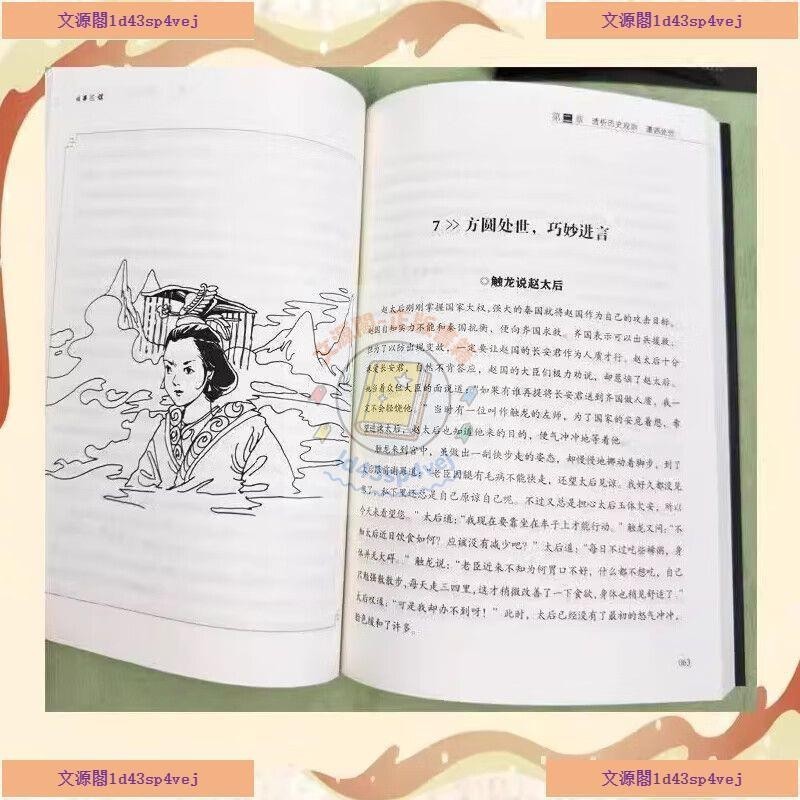 文源閣1d43sp4vej
文源閣1d43sp4vej
第二章 透析历史规则
7 >> 方圆处世，巧妙进言
◎触龙说赵太后
赵太后刚刚掌握国家大权，强大的秦国就将赵国作为自己的攻击目标。
赵国自知实力不能和秦国抗衡，便向齐国求救。齐国表示可以出兵援救，
但为了以防出现变故，一定要让赵国的长安君作为人质才行。赵太后十分
疼爱长安君，自然不肯答应，赵国的大臣们极力劝说，却惹误了赵太后。
她当着众位大臣的面说道：“如果有谁再提将长安君送到齐国做人质，我一
定不会轻饶他。”当时有一位叫作触龙的左师，为了国家的安危着想，希
望进谏太后，赵太后也知道他来的目的，便气冲冲地等着他。
触龙来到宫中，虽做出一副快步走的姿态，却慢慢地挪动着脚步，到了
太后跟前谢罪道：“老臣因腿有毛病不能快走，还望太后见谅。我好久都没见
您了，私下里还总是自己原谅自己呢。不过又总是担心太后玉体欠安，所以
今天来看望您。”太后道：“我现在要靠坐在车子上才能行动。”触龙又问：“不
知太后近日饮食如何？应该没有减少吧？”太后道：“每日不过吃些稀粥，身
体并无大碍。”触龙说：“老臣近来不知为何胃口不好，什么都不想吃，自己
只勉强散散步，每天走三四里，这才稍微改善了一下食欲，身体也稍见舒适了。”
太后叹道：“可是我却办不到呀！”此时，太后已经没有了最初的怒气冲冲，
脸色缓和了许多。
063
文源閣-正版書籍
1d43sp4vej
文源閣1d43sp4vej
文源閣1d43sp4vej